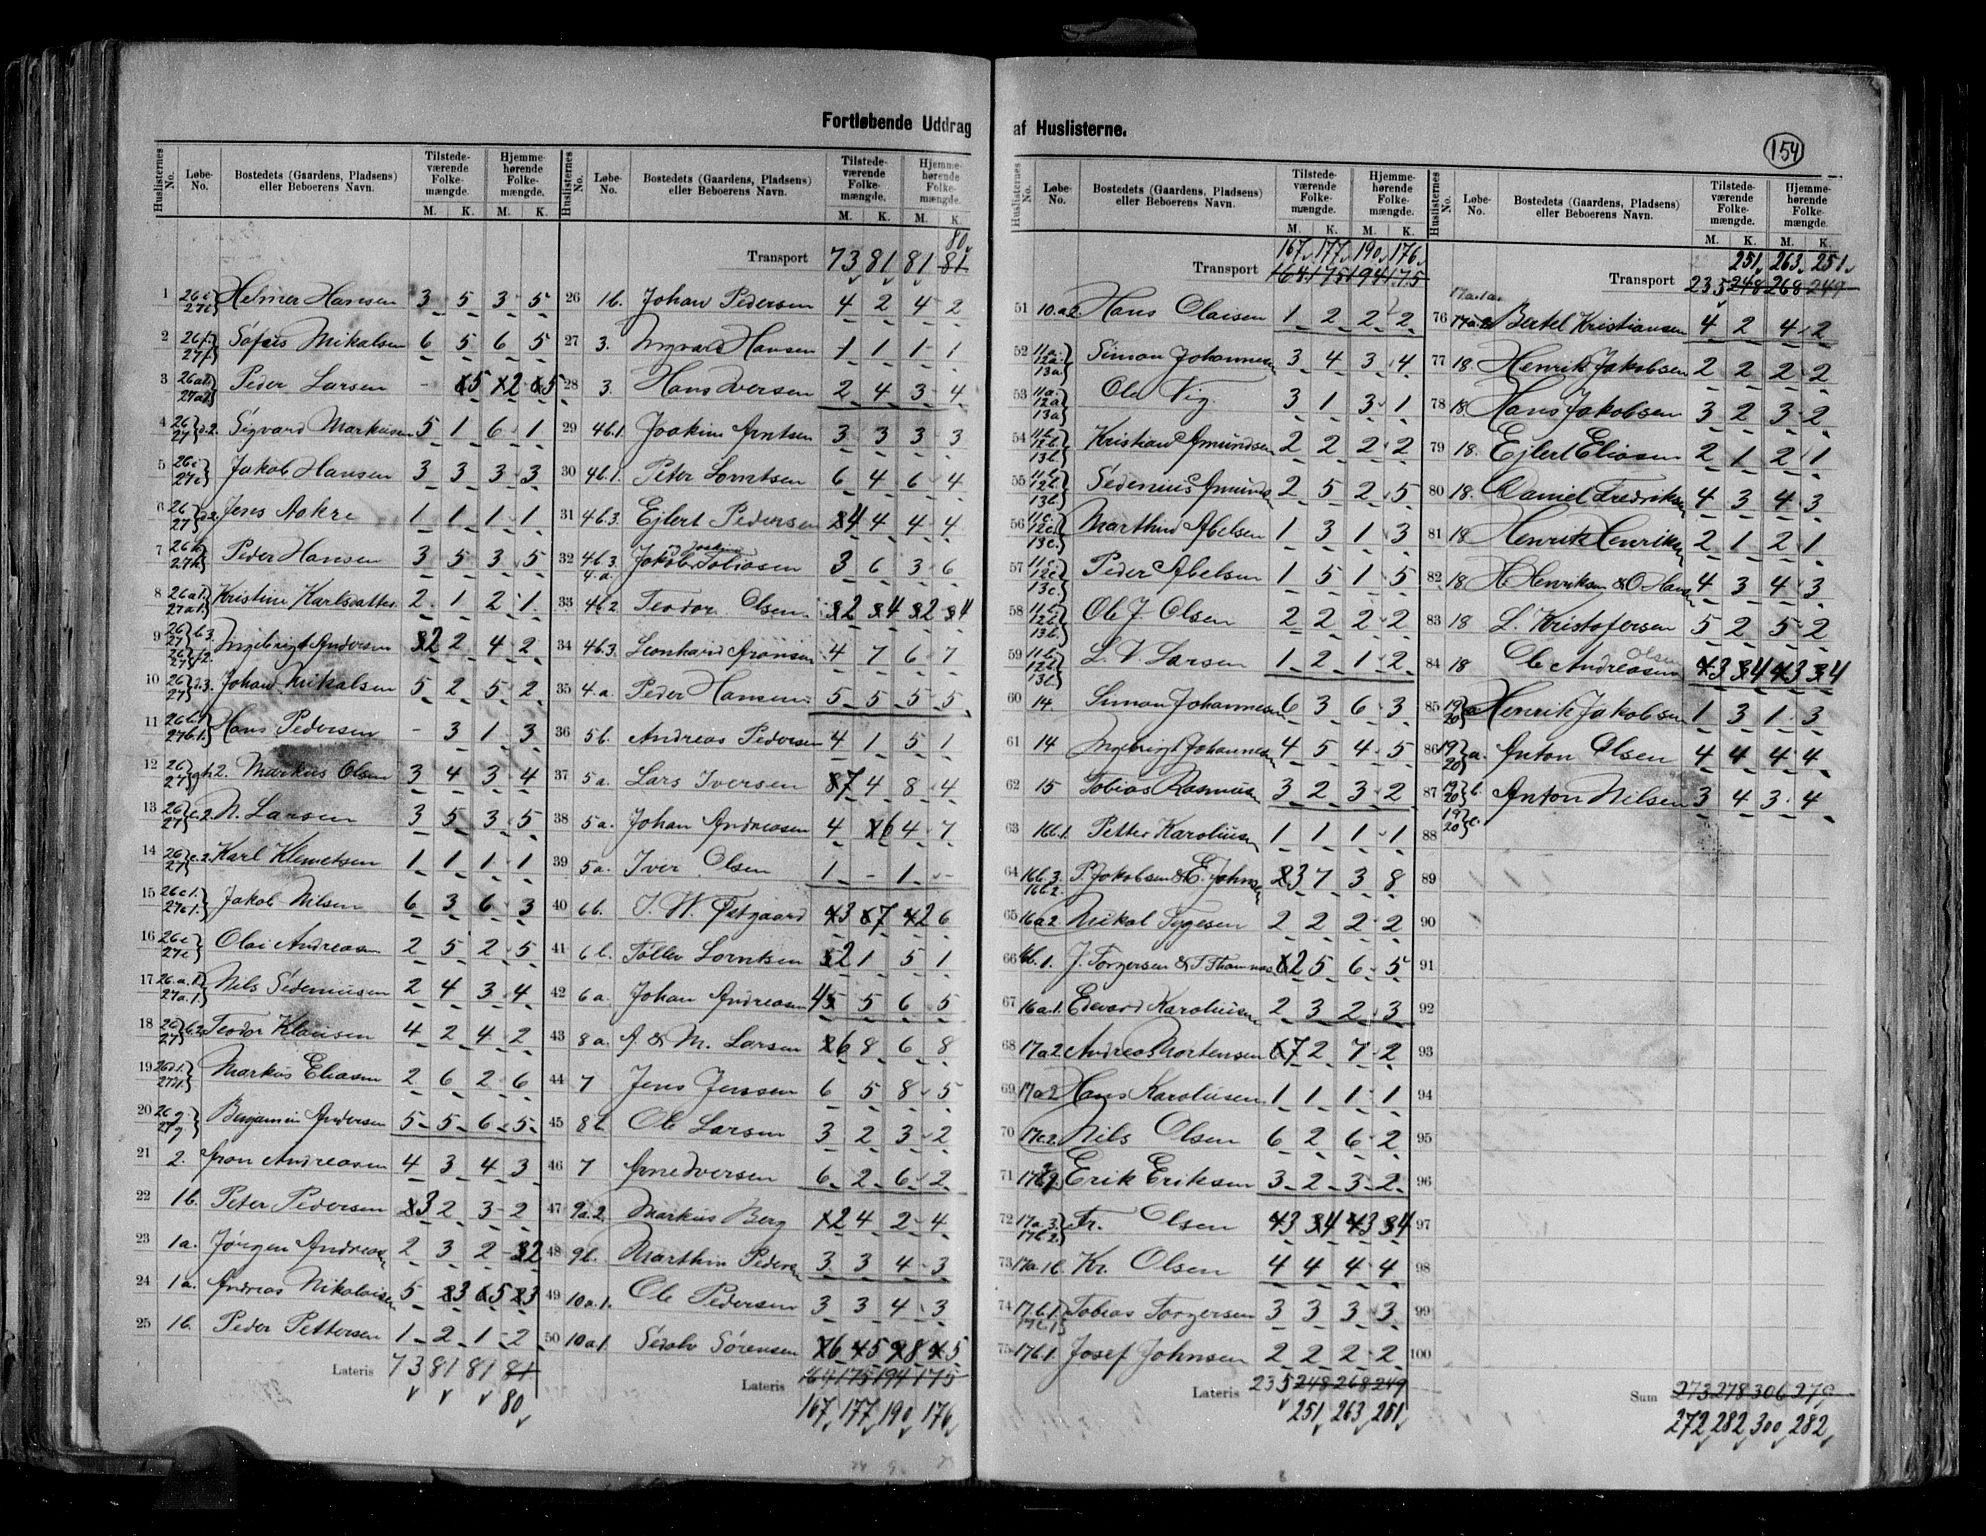 Fortløbende Uddrag af Huslisterne.
154
Huslisternes No. Løbe-No. Bostedets (Gaardens, Pladsens) eller Beboerens Navn. Tilstedeværende Folkemængde. M. K. Hjemmehørende Folkemængde. M. K.
1 26c 27c Helmer Hansen 3 5 3 5
2 26f. 27f. Sofus Mikalsen 6 5 6 5
3 26a2 27a2 Peder Larsen - 5 2 5
4 26 27 d.2. Sigvard Markusen 5 1 6 1
5 26c 27c Jakob Hansen 3 3 3 3
6 26 27 d.2. Jens Aakre 1 1 1 1
7 26k 27k Peder Hansen 3 5 3 5
8 26a1. 27a1. Kristine Karlsdatter 2 1 2 1
9 26 27 b3. 26 27 f2. Ingebrigt Andersen 2 2 4 2
10 26 27 d3. Johan Mikalsen 5 2 5 2
11 26b.1 27b.1 Hans Pedersen - 3 1 3
12 26 27 gh2. Markus Olsen 3 4 3 4
13 26 27 c.2 N. Larsen 3 5 3 5
14 26 27 c.2. Karl Klemetsen 1 1 1 1
15 26c1. 27c1. Jakob Nilsen 6 3 6 3
16 26c 27c Olai Andreasen 2 5 2 5
17 26.a.1 27a.1. Nils Sedeniusen 2 4 3 4
18 26 27 b.2 Teodor Klausen 4 2 4 2
19 26d1. 27d1. Markus Eliasen 2 6 2 6
20 26g 27g Benjamin Andersen 5 5 6 5
21 2. Aron Andreasen 4 3 4 3
22 1b. Peter Pedersen 3 2 3 2
23 1a. Jørgen Andreasen 2 3 2 2
24 1a. Andreas Nikolaisen 5 3 5 3
25 1b. Peder Pettersen 1 2 1 2
Lateris 73 81 81 81
80
Huslisternes No. Løbe-No. Bostedets (Gaardens, Pladsens) eller Beboerens Navn. Tilstedeværende Folkemængde. M. K. Hjemmehørende Folkemængde. M. K.
80
Transport 73 81 81 81
26 1b. Johan Pedersen 4 2 4 2
27 3. Ingvard Hansen 1 1 1 1
28 3. Hans Iversen 2 4 3 4
29 4b.1. Joakim Arntsen 3 3 3 3
30 4b.1. Peter Lorntsen 6 4 6 4
31 4b.3. Ejlert Pedersen 4 4 4 4
32 4b.3. 4.a. Jakob og Joakim Tobiasen 3 6 3 6
33 4b.2 Teodor Olsen 2 4 2 4
34 4b.3. Leonhard Aronsen 4 7 6 7
35 4.a. Peder Hansen 5 5 5 5
36 5b. Andreas Pedersen 4 1 5 1
37 5a. Lars Iversen 7 4 8 4
38 5a. Johan Andreasen 4 6 4 7
39 5a. Iver Olsen 1 - 1 -
40 6b. J. W. Østgaard 3 7 2 6
41 6b. Tollev Lorntsen 2 1 5 1
42 6a. Johan Andreasen 4 5 6 5
43 8a. A & M. Larsen 6 8 6 8
44 7 Jens Jenssen 6 5 8 5
45 8b. Ole Larsen 3 2 3 2
46 7 Arne Iversen 6 2 6 2
47 9a.2. Markus Berg 2 4 2 4
48 9b. Marthin Pedersen 3 3 4 3
49 10a.1. Ole Pedersen 3 3 4 3
50 10a.1. Sivolv Sørensen 6 5 8 5
Lateris 164 175 194 175
167 177 190 176
Huslisternes No. Løbe-No. Bostedets (Gaardens, Pladsens) eller Beboerens Navn. Tilstedeværende Folkemængde. M. K. Hjemmehørende Folkemængde. M. K.
167 177 190 176
Transport 164 175 194 175
51 10.a2. Hans Olaisen 1 2 2 2
52 11a. 12a. 13a. Simon Johannesen 3 4 3 4
53 11a. 12a 13a Ole Vig. 3 1 3 1
54 11b. 12b. 13b. Kristian Amundsen 2 2 2 2
55 11b. 12b. 13b. Sedenius Amundsen 2 5 2 5
56 11c. 12c. 13c. Marthin Abelsen 1 3 1 3
57 11c. 12c. 13c. Peder Abelsen 1 5 1 5
58 11b. 12b. 13b. Ole J. Olsen 2 2 2 2
59 11b. 12b. 13b. L. V. Larsen 1 2 1 2
60 14 Simon Johannesen 6 3 6 3
61 14 Ingebrigt Johannesen 4 5 4 5
62 15 Tobias Rasmusen 3 2 3 2
63 16b.1. Petter Karoliusen 1 1 1 1
64 16b.3. 16b2. P. Jakobsen & E. Johnsen 3 7 3 8
65 16a2 Mikal Tygesen 2 2 2 2
66 16b.1. J. Torgersen & T. Thommas 2 5 6 5
67 16a.1. Edevard Karoliusen 2 3 2 3
68 17a2 Andreas Mortensen 7 2 7 2
69 17a2 Hans Karoliusen 1 1 1 1
70 17c2. Nils Olsen 6 2 6 2
71 Erik Eriksen 3 2 3 2
72 17a.3. 17b2. Fr. Olsen 3 4 3 4
73 Kr. Olsen 4 4 4 4
74 17b.1 17c.1 Tobias Torgersen 3 3 3 3
75 17b.1. Josef Johnsen 2 2 2 2
Lateris 235 248 268 249
251 263 251
Huslisternes No. Løbe-No. Bostedets (Gaardens, Pladsens) eller Beboerens Navn. Tilstedeværende Folkemængde. M. K. Hjemmehørende Folkemængde. M. K.
251 263 251
Transport 235 248 268 249
76 17a2 Bertel Kristiansen 4 2 4 2
77 18. Henrik Jakobsen 2 2 2 2
78 18 Hans Jakobsen 3 2 3 2
79 18. Ejlert Eliasen 2 1 2 1
80 18. Daniel Fredriksen 4 3 4 3
81 18 Henrik Henriksen 2 1 2 1
82 18 H. Henriksen & O Hansen 4 3 4 3
83 18 L. Kristofersen 5 2 5 2
84 18 Ole Andreasen Olsen 3 4 3 4
85 19 20 a Henrik Jakobsen 1 3 1 3
86 19 20 a. Anton Olsen 4 4 4 4
87 19 20 b Anton Nilsen 3 4 3 4
88 19 20 c.
89
90
91
92
93
94
95
96
97
98
99
100
Sum 273 278 306 279
272 282 300 282